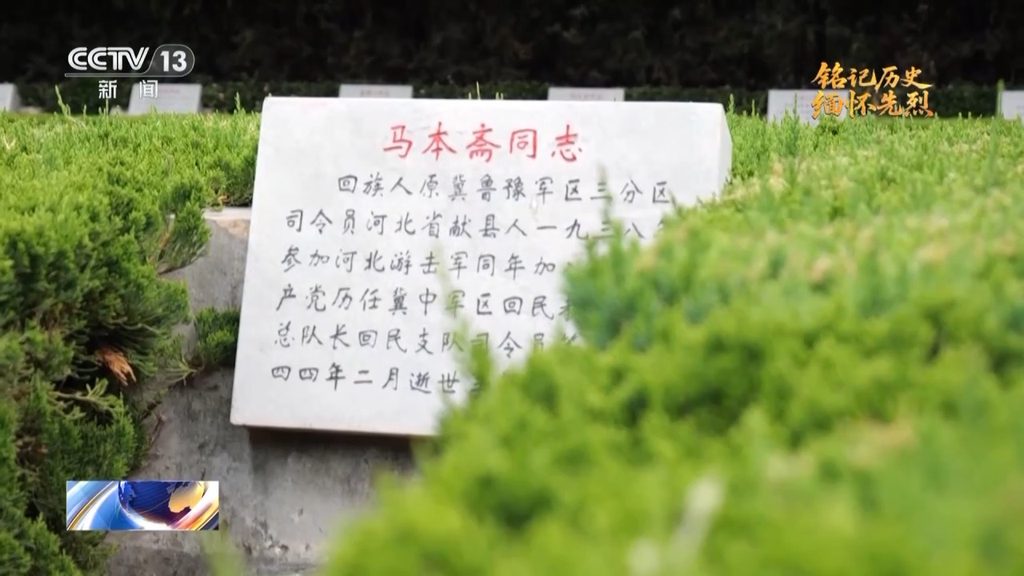 CCTV 13
新闻
铭记历史
缅怀先烈
马本斋同志
回族人原冀鲁豫军区三分区
司令员河北省献县人一九三八
参加河北游击军同年加
产党历任冀中军区回民
总队长回民支队司令员
四四年二月逝世